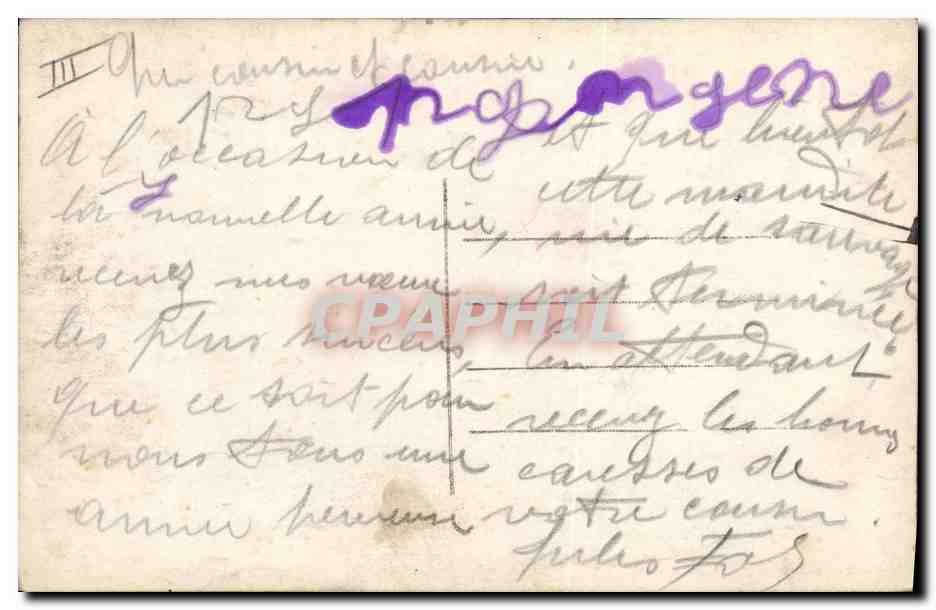 III
cousin et cousine.
À l'occasion de
la nouvelle année,
recevez mes vœux
les plus sincères,
que ce soit pour
nous tous une
année heureuse
et que bientôt
cette maudite
vie de sauvage
soit terminée
En attendant
recevez les bonnes
caresses de
votre cousin.
Jules
CPAPHIL